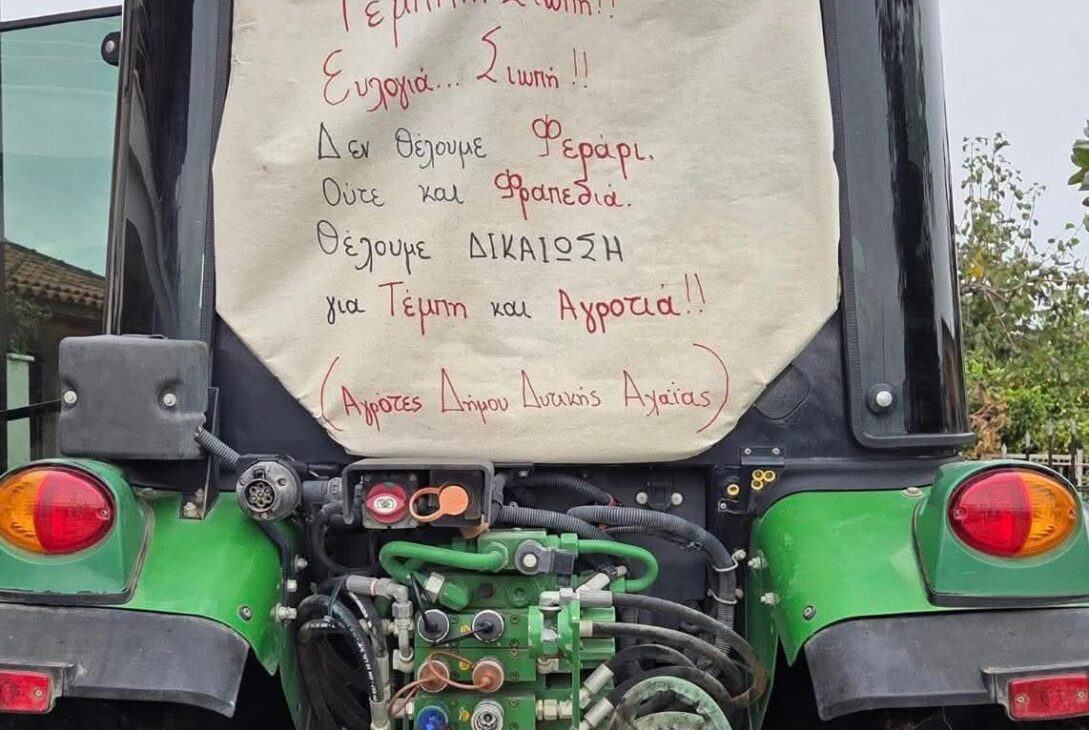 Τέμπη... Σιωπή!!
Ευλογιά... Σιωπή!!
Δεν θέλουμε Φεράρι.
Ούτε και Φραπεδιά.
Θέλουμε ΔΙΚΑΙΩΣΗ
για Τέμπη και Αγροτιά!!
(Αγρότες Δήμου Δυτικής Αχαΐας)